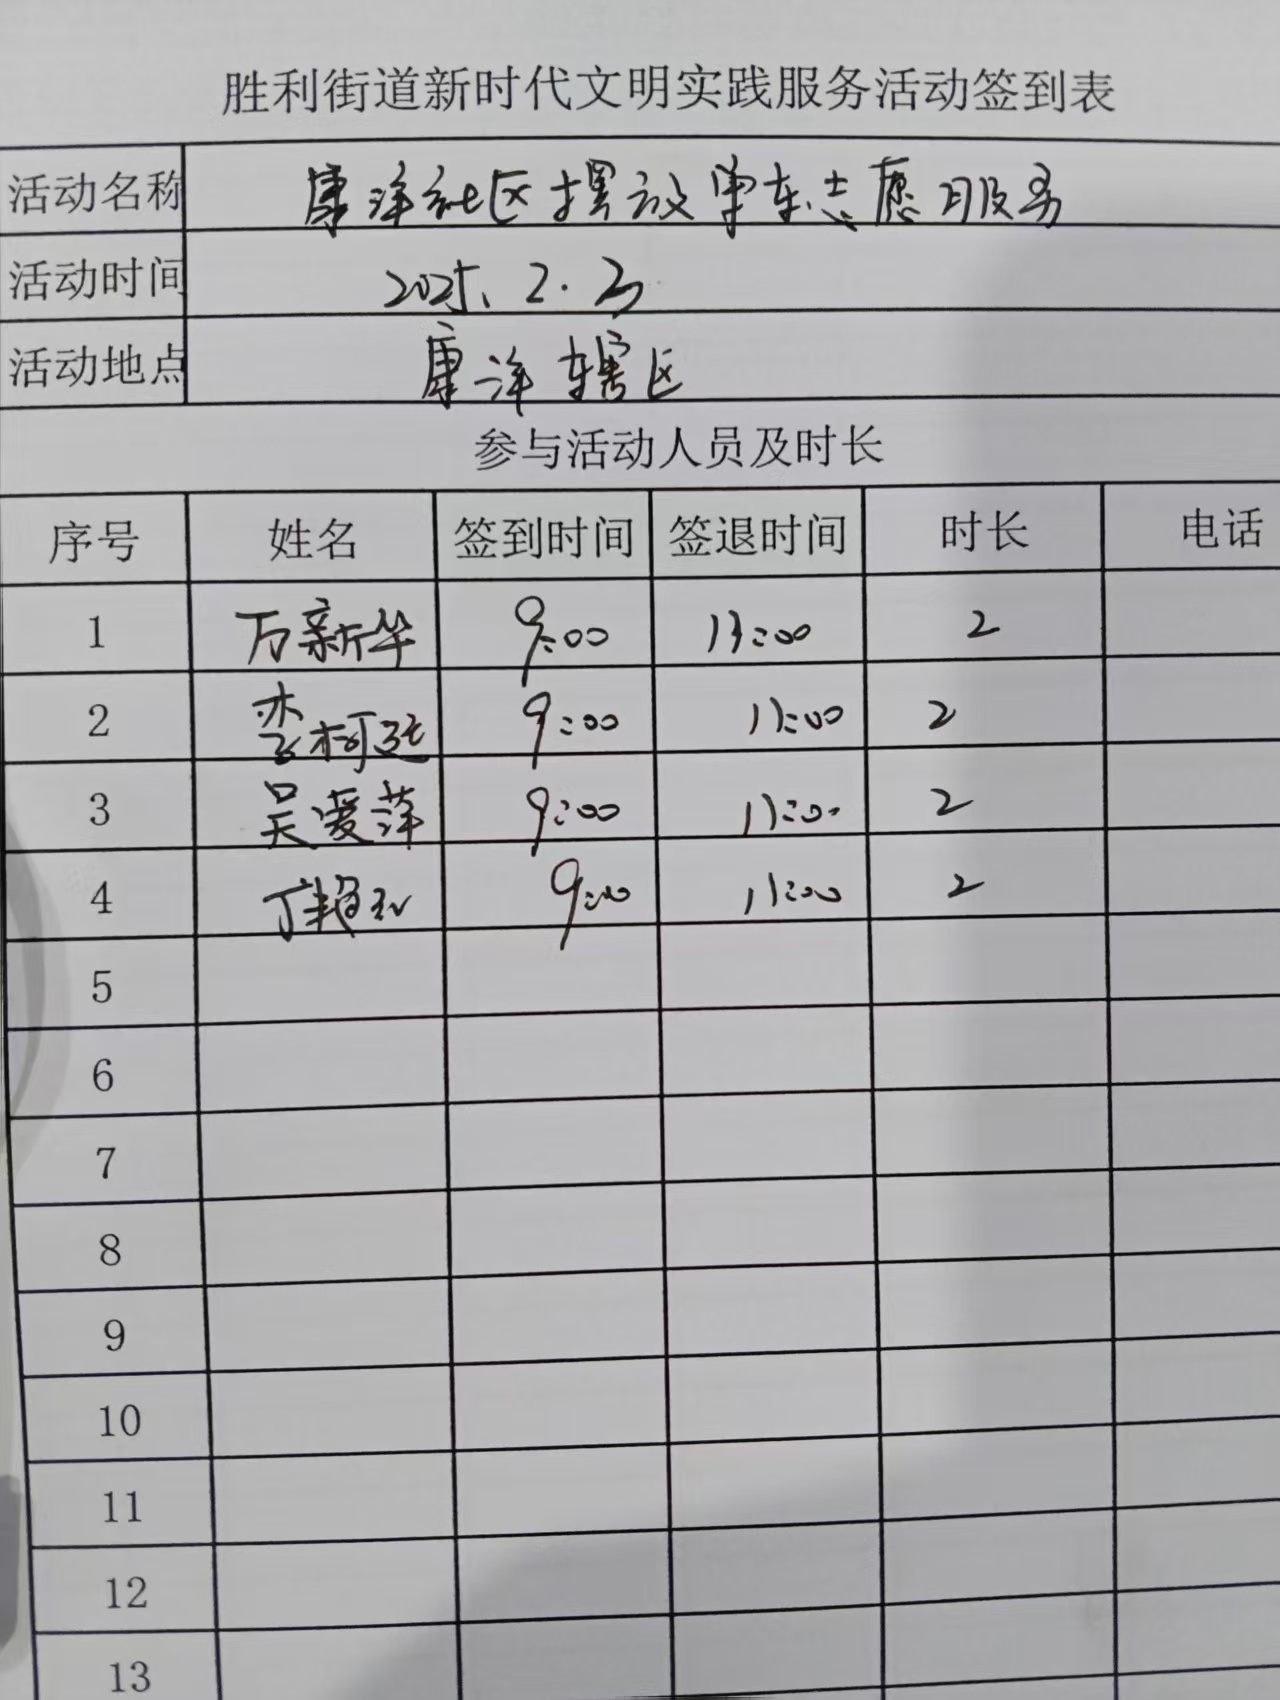 胜利街道新时代文明实践服务活动签到表
活动名称 康洋社区摆放单车志愿服务
活动时间 2025.2.23
活动地点 康洋辖区
参与活动人员及时长
序号 姓名 签到时间 签退时间 时长 电话
1 万新华 9:00 11:00 2
2 李柯延 9:00 11:00 2
3 吴爱萍 9:00 11:00 2
4 9:00 11:00 2
5
6
7
8
9
10
11
12
13